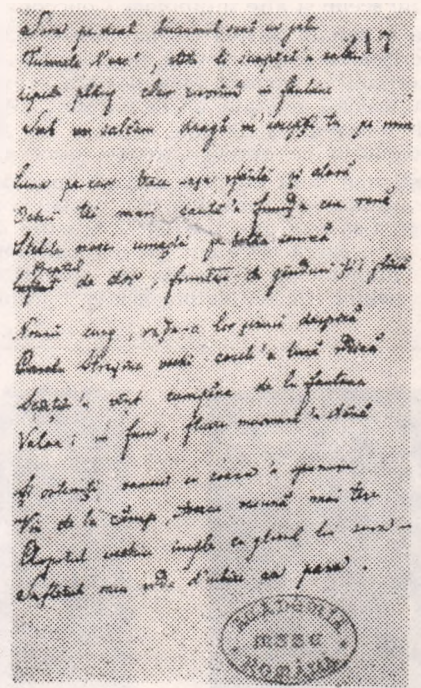 Sara pe deal buciumul sună cu jale
Turmele l'urc, stele le scapără 'n cale
17
Apele plâng clar isvorând în fântâne
Sub un salcâm, dragă m'aștepți tu pe mine
Luna pe cer trece așa sfântă și clară
Ochii tăi mari caută 'n frunza cea rară
Stelele nasc umezi pe bolta senină
Pieptul
de dor, fruntea de gânduri ți-i plină
Nourii curg, raze-a lor șiruri despică
Streșine vechi casele 'n lună ridică
Scârție 'n vânt cumpăna de la fântână
Valea-i în fum, fluere murmură 'n stână
Și osteniți oameni cu coasa 'n spinare
Vin de la câmp, toaca răsună mai tare
Clopotul vechiu împle cu glasul lui sara
Sufletul meu arde 'n iubire ca para.
ACADEMIA
MSSE
ROMÂNĂ